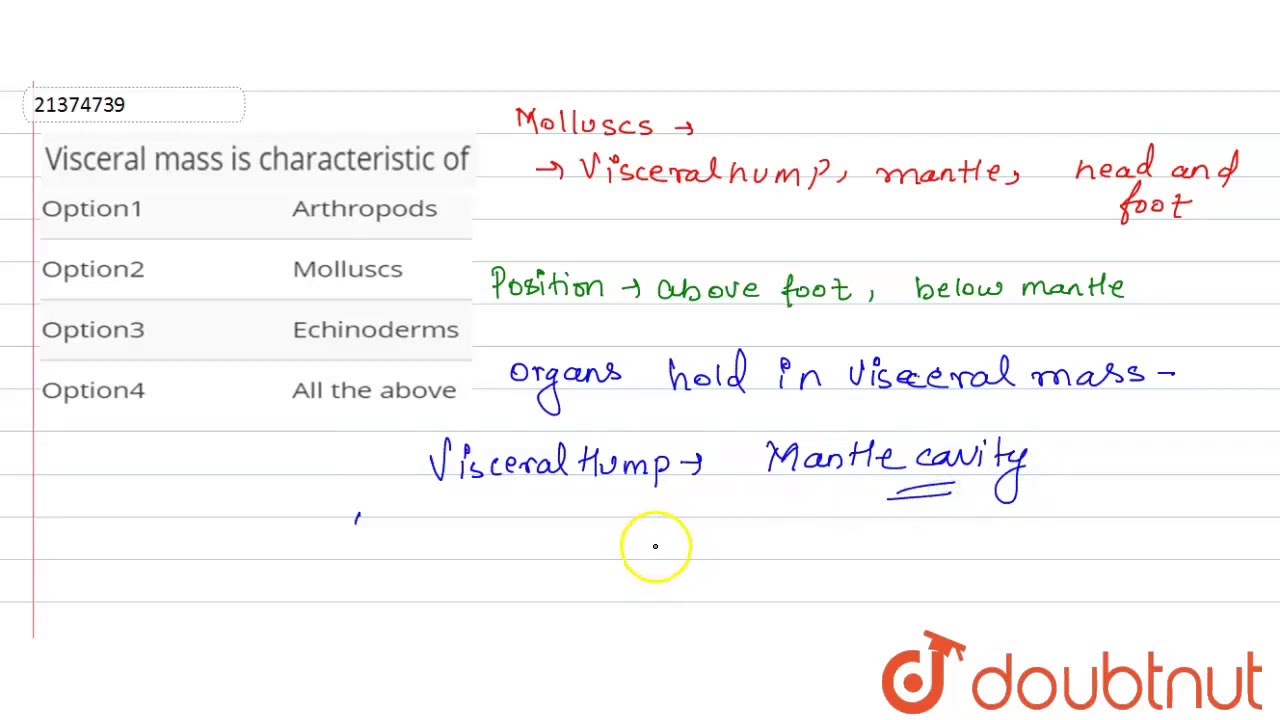 21374739
Visceral mass is characteristic of
Option1 Arthropods
Option2 Molluscs
Option3 Echinoderms
Option4 All the above
Molluscs →
→ Visceral hump, mantle, head and
foot
Position → above foot, below mantle
Organs hold in visceral mass -
Visceral Hump → Mantle cavity
doubtnut